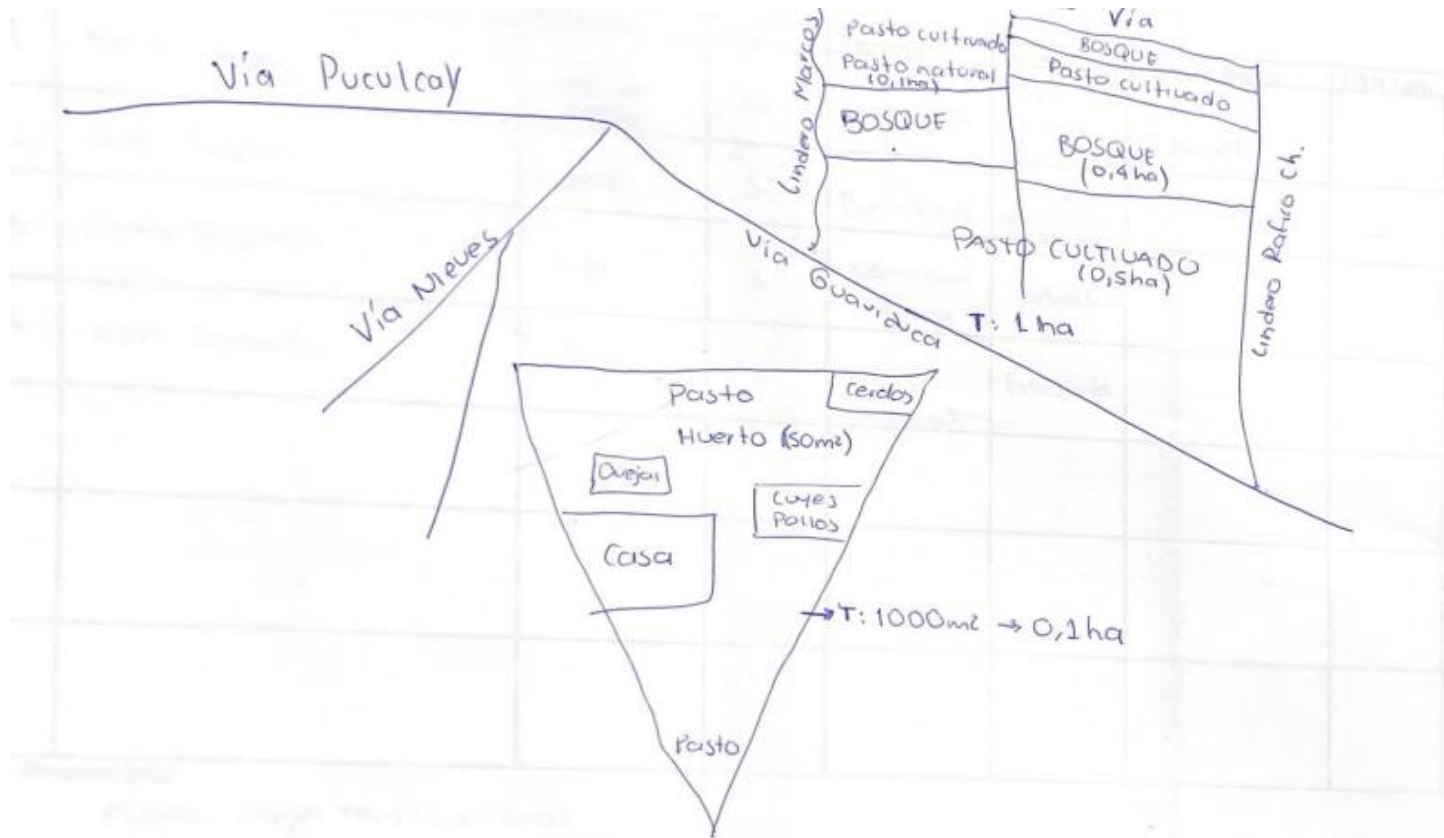 Vía Puculcay
Vía Nieves
Vía Guaviduca
Lindero Marcos
Pasto cultivado
Pasto natural
(0,1ha)
BOSQUE
Vía
BOSQUE
Pasto cultivado
BOSQUE
(0,4ha)
PASTO CULTIVADO
(0,5ha)
T: 1 ha
Lindero
Ch.
Pasto
Cerdos
Huerto (50m²)
Ovejas
Cuyes
Pollos
Casa
→ T: 1000m² → 0,1ha
Pasto